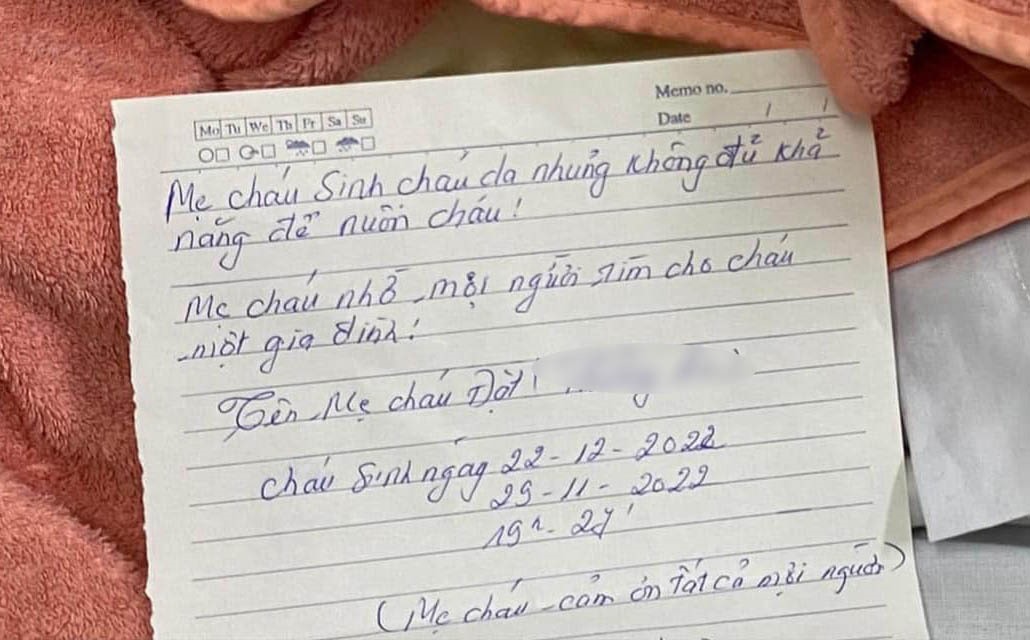 Memo no.
Mo Tu We Th Fr Sa Su
Date / /
Mẹ cháu Sinh cháu da nhưng không đủ khả
năng để nuôn cháu!
Mẹ cháu nhờ mọi người tìm cho cháu
một gia đình!
Tên Mẹ cháu Đặt:
cháu Sinh ngày 22-12-2022
29-11-2022
19h-27'
(Mẹ cháu cảm ơn tất cả mọi người)